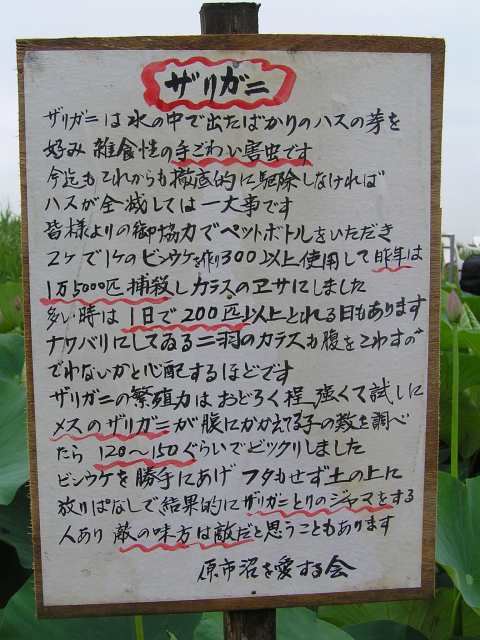 ザリガニ
ザリガニは水の中で出たばかりのハスの芽を
好み雑食性の手ごわい害虫です
今迄もこれからも徹底的に駆除しなければ
ハスが全滅しては一大事です
皆様よりの御協力でペットボトルをいただき
2ケで1ケのビンウケを作り300以上使用して昨年は
1万5000匹捕殺しカラスのエサにしました
多い時は1日で200匹以上とれる日もあります
ナワバリにしてゐる二羽のカラスも腹をこわすの
でわないかと心配するほどです
ザリガニの繁殖力はおどろく程強くて試しに
メスのザリガニが腹にかかえてる子の数を調べ
たら120〜150ぐらいでビックリしました
ビンウケを勝手にあげフタもせず土の上に
放りぱなしで結果的にザリガニとりのジャマをする
人あり敵の味方は敵だと思うこともあります
原市沼を愛する会